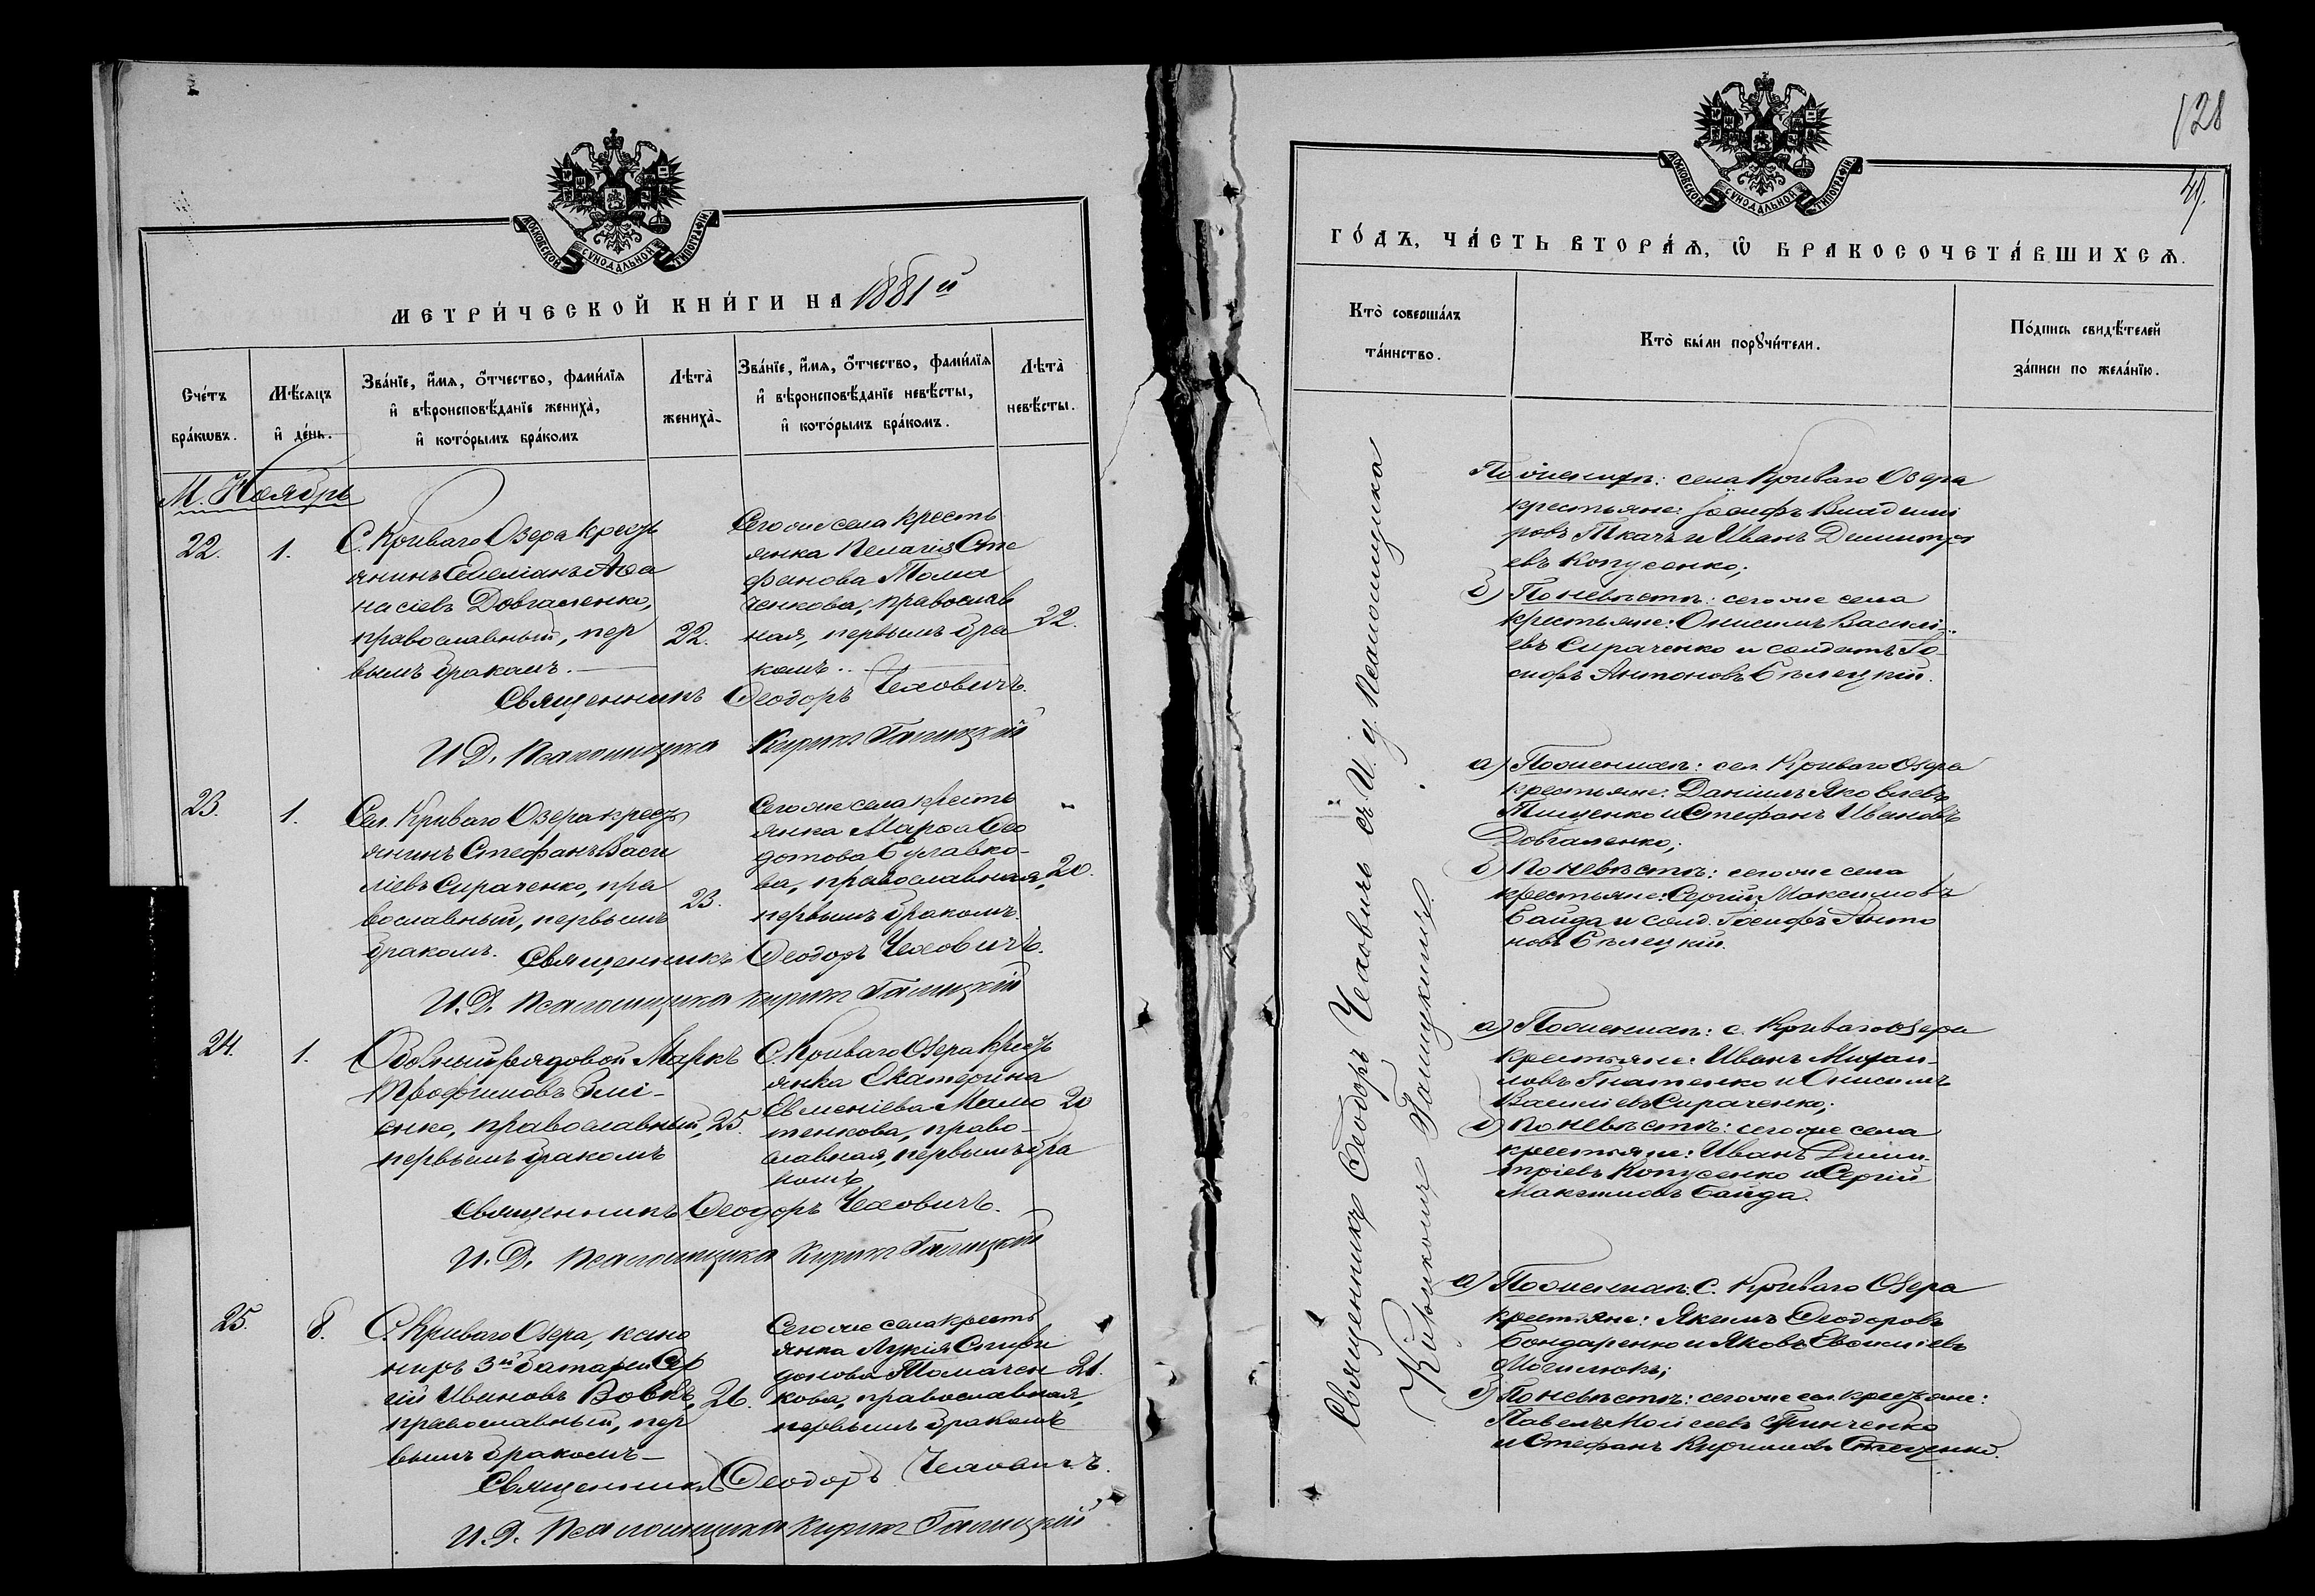 МОСКОВСКОЙ СѴНОДАЛЬНОЙ ТИПОГРАФІИ
МЕТРИ́ЧЕСКОЙ КНИ́ГИ НА 1881й
Сче́тъ бра́кѡвъ.
Мѣ́сяцъ и҆ де́нь.
Зва́нїе, и҆́мя, ѻ҆́тчество, фами́лїя
и҆ вѣроисповѣ́данїе жениха̀,
и҆ кото́рымъ бра́комъ
Лѣта̀ жениха̀.
Зва́нїе, и҆́мя, ѻ҆́тчество, фами́лїя
и҆ вѣроисповѣ́данїе невѣ́сты,
и҆ кото́рымъ бра́комъ.
Лѣта̀ невѣ́сты.
М. Ноябрь
22.
1.
С. Криваго Озера крест
янинъ Емеліанъ Аѳа
насіевъ Довгаленко,
православный, пер
вымъ бракомъ.
22.
Сегоже села кресть
янка Пелагія Сте
фанова Тома
ченкова, православ
ная, первымъ бра
комъ.
22.
Священникъ Ѳеодоръ Чеховичъ.
И. Д. Псаломщика Кирикъ Галицкій
23.
1.
Сел. Криваго Озера крест
янинъ Стефанъ Васи
ліевъ Сираченко, пра
вославный, первымъ
бракомъ.
23.
Сегоже села кресть
янка Марѳа Ѳео
дотова Булавко-
ва, православная,
первымъ бракомъ.
20.
Священникъ Ѳеодоръ Чеховичъ.
И. Д. Псаломщика Кирикъ Галицкій
24.
1.
рядовой Маркъ
Трофимовъ
енко, православный,
первымъ бракомъ
25.
С. Криваго Озера крест
янка Екатерина
Евменіева Мамо
тенкова, право-
славная, первымъ бра
комъ
20
Священникъ Ѳеодоръ Чеховичъ.
И. Д. Псаломщика Кирикъ Галицкій
25.
8.
С. Криваго Озера, кано
ниръ 3й батареи Сер
гій Ивановъ Вовкъ,
православный, пер
вымъ бракомъ
26.
Сегоже села кресть
янка Лукія Спири
донова Томачен
кова, православная,
первымъ бракомъ
21.
Священникъ Ѳеодоръ Чеховичъ.
И. Д. Псаломщика Кирикъ Галицкій
128
МОСКОВСКОЙ СѴНОДАЛЬНОЙ ТИПОГРАФІИ
ГО́ДЪ, ЧА́СТЬ ВТОРА́Ѧ, Ѽ БРАКОСОЧЕТА́ВШИХСѦ.
Кто̀ соверша́лъ
та́инство.
Кто̀ бы́ли порꙋчи́тели.
По́дпись свидѣ́телей
за́писи по жела́нїю.
Священникъ Ѳеодоръ Чеховичъ съ И. д. Псаломщика
Кирикомъ Галицкимъ.
По женихѣ: села Криваго Озера
крестьяне: Іосифъ Владими
ровъ Ткачъ и Иванъ Димитрі
евъ Копусенко;
б) По невѣстѣ: сегоже села
крестьяне: Онисимъ Василі-
евъ Сираченко и солдатъ Іо-
сифъ Антоновъ Бѣлецкій.
а) По женихѣ: сел. Криваго Озера
крестьяне: Даніилъ Яковлевъ
Тищенко и Стефанъ Ивановъ
Довгаленко;
б) По невѣстѣ: сегоже села
крестьяне: Сергій Максимовъ
Байда и солд. Іосифъ Анто
новъ Бѣлецкій.
а) По женихѣ: с. Криваго Озера
крестьяне: Иванъ Михаи-
ловъ Гнатенко и Онисимъ
Василіевъ Сираченко;
б) По невѣстѣ: сегоже села
крестьяне: Иванъ Дими-
тріевъ Копусенко и Сергій
Максимовъ Байда.
а) По женихѣ: С. Криваго Озера
крестьяне: Якимъ Ѳеодоровъ
Бондаренко и Яковъ
б) По невѣстѣ: сегоже сел. крестьяне:
Павелъ Моисеевъ Гринченко
и Стефанъ Кирилловъ